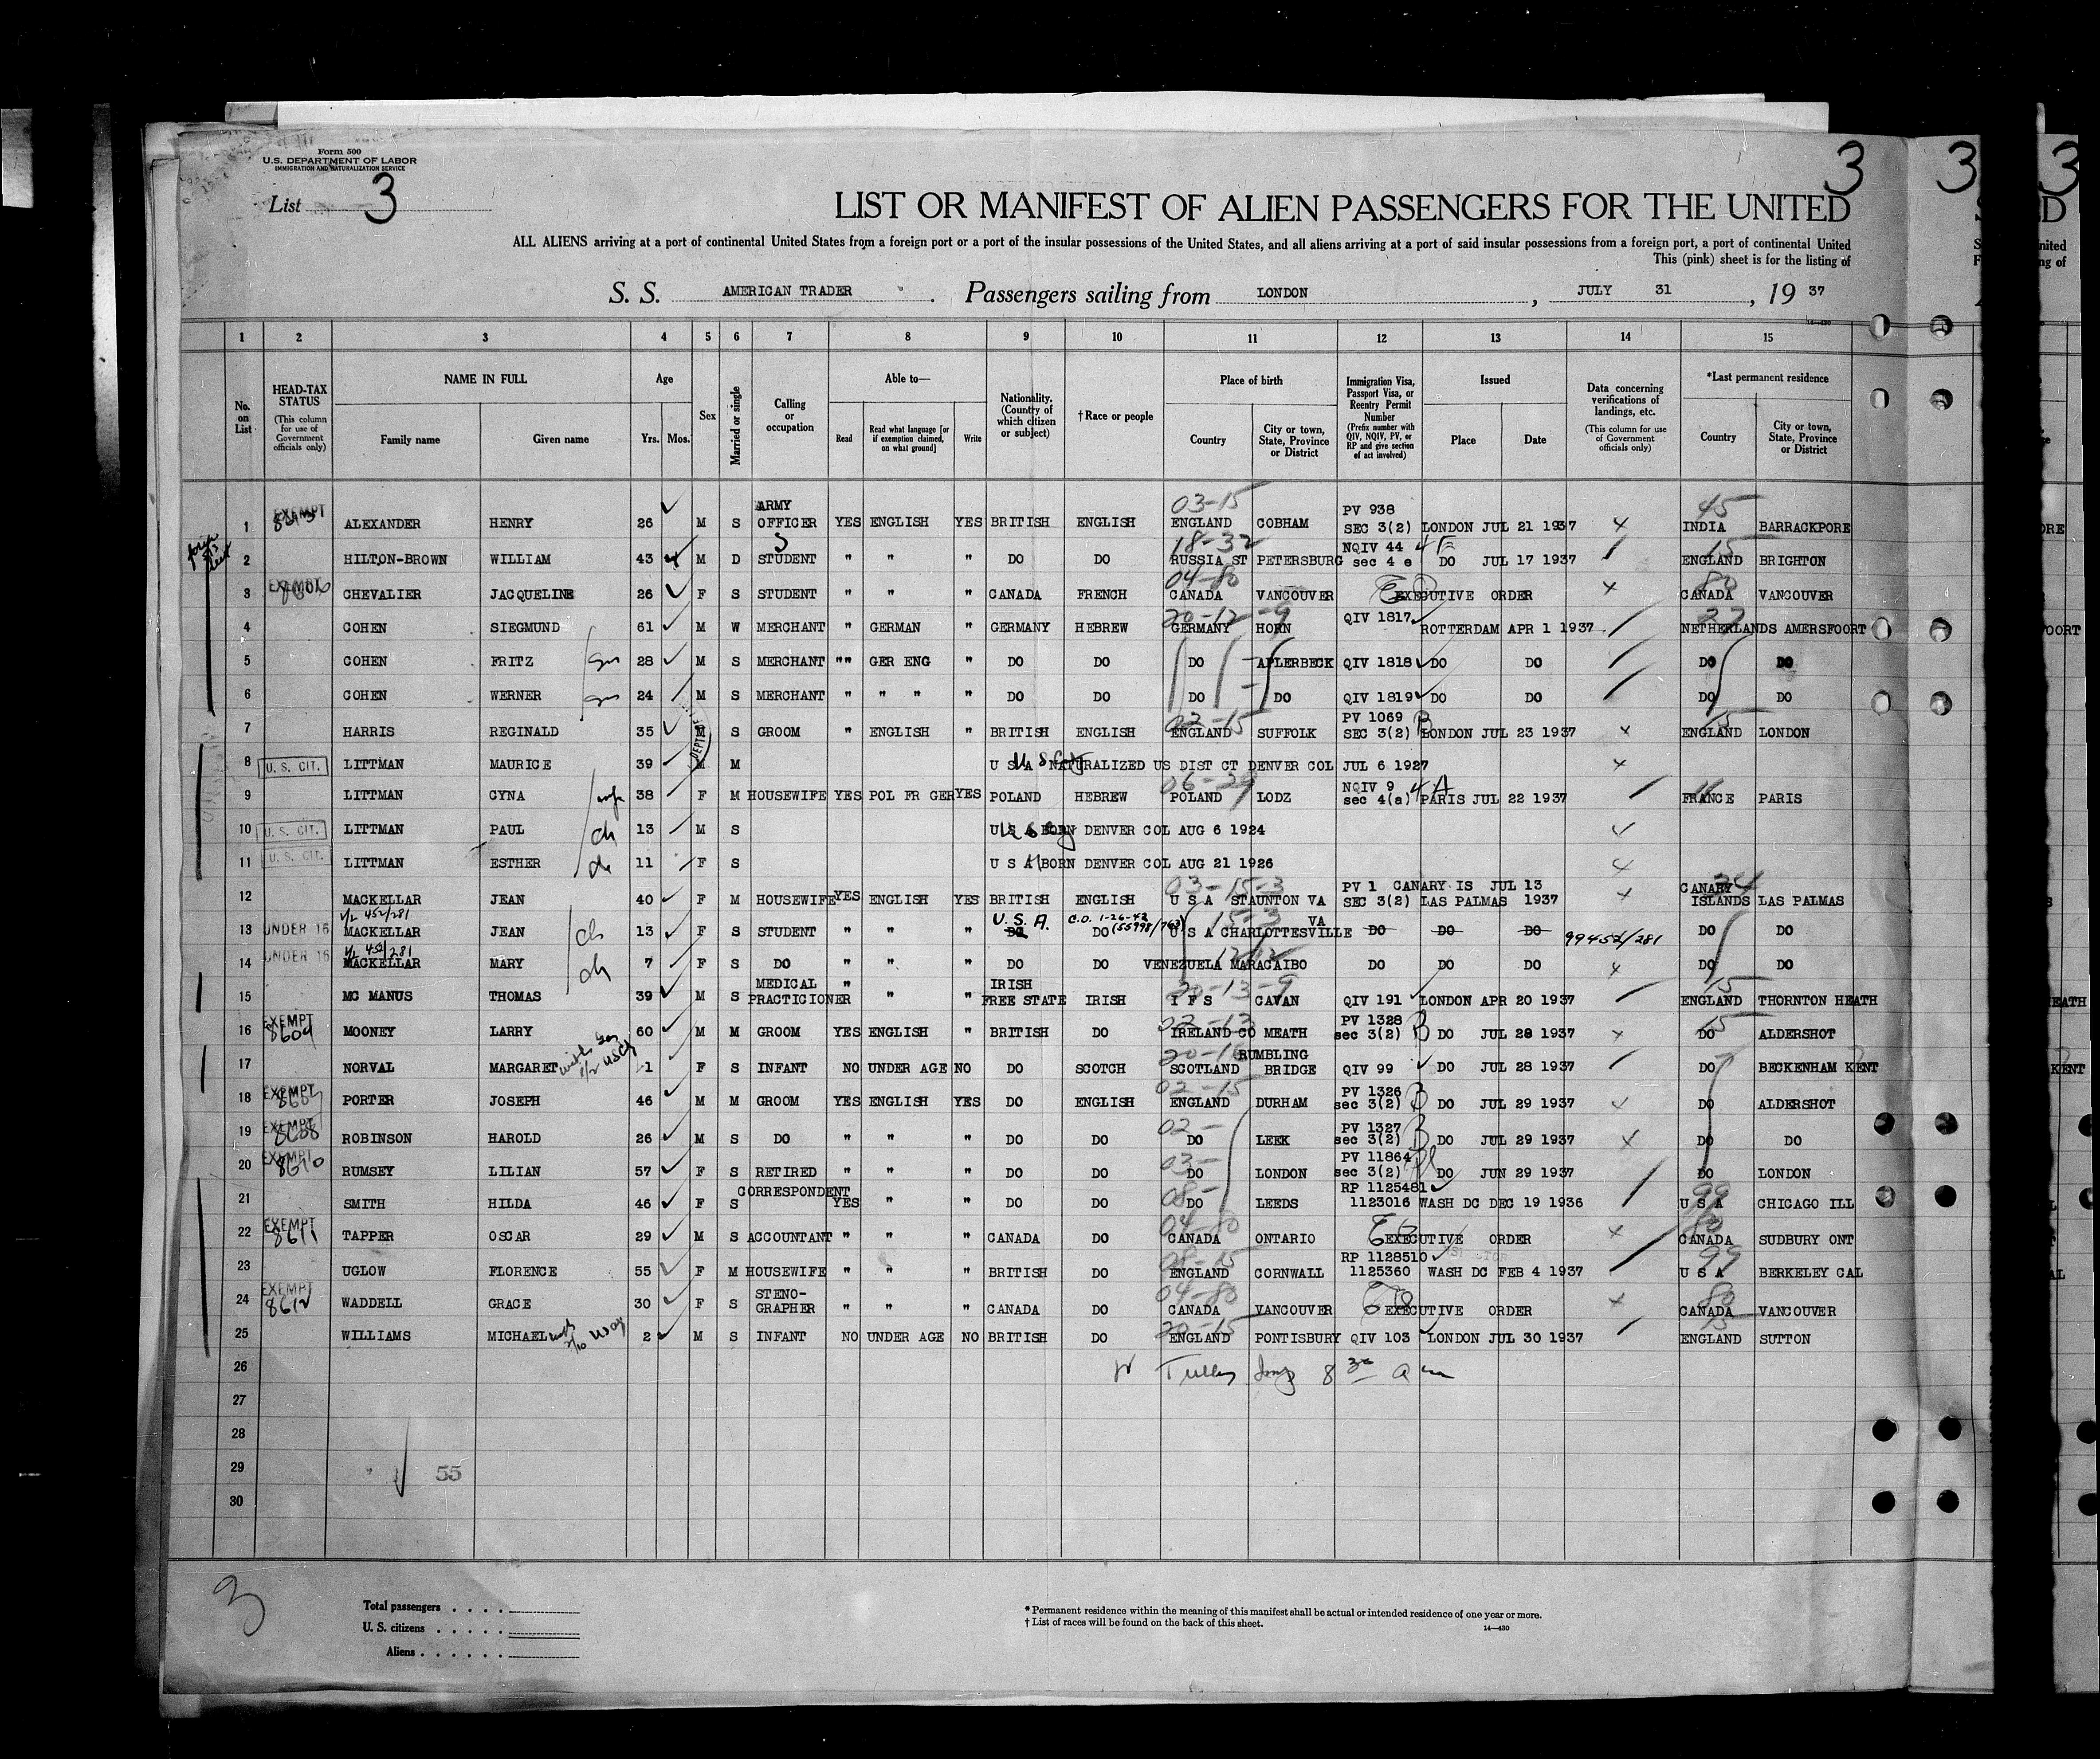 Form 500
U.S. DEPARTMENT OF LABOR
IMMIGRATION AND NATURALIZATION SERVICE
List 3
3 3 3
LIST OR MANIFEST OF ALIEN PASSENGERS FOR THE UNITED
ALL ALIENS arriving at a port of continental United States from a foreign port or a port of the insular possessions of the United States, and all aliens arriving at a port of said insular possessions from a foreign port, a port of continental United
This (pink) sheet is for the listing of
S. S. AMERICAN TRADER . Passengers sailing from LONDON , JULY 31 , 19 37
14—430
1 2 3 4 5 6 7 8 9 10 11 12 13 14 15
No. on List
HEAD-TAX STATUS (This column for use of Government officials only)
NAME IN FULL Family name Given name
Age Yrs. Mos.
Sex
Married or single
Calling or occupation
Able to— Read Read what language [or if exemption claimed, on what ground] Write
Nationality. (Country of which citizen or subject)
†Race or people
Place of birth Country City or town, State, Province or District
Immigration Visa, Passport Visa, or Reentry Permit Number (Prefix number with QIV, NQIV, PV, or RP and give section of act involved)
Issued Place Date
Data concerning verifications of landings, etc. (This column for use of Government officials only)
*Last permanent residence Country City or town, State, Province or District
1 EXEMPT ALEXANDER HENRY 26 M S ARMY OFFICER YES ENGLISH YES BRITISH ENGLISH 03-15 ENGLAND COBHAM PV 938 SEC 3(2) LONDON JUL 21 1937 45 INDIA BARRACKPORE
2 HILTON-BROWN WILLIAM 43 M D STUDENT " " " DO DO 18-32 RUSSIA ST PETERSBURG NQIV 44 sec 4 e 4E DO JUL 17 1937 15 ENGLAND BRIGHTON
3 EXEMPT CHEVALIER JACQUELINE 26 F S STUDENT " " " CANADA FRENCH 04-80 CANADA VANCOUVER EXECUTIVE ORDER 80 CANADA VANCOUVER
4 COHEN SIEGMUND 61 M W MERCHANT " GERMAN " GERMANY HEBREW 20-12-9 GERMANY HORN QIV 1817 ROTTERDAM APR 1 1937 27 NETHERLANDS AMERSFOORT
5 COHEN FRITZ 28 M S MERCHANT "" GER ENG " DO DO DO APLERBECK QIV 1818 DO DO DO DO
6 COHEN WERNER 24 M S MERCHANT " " " " DO DO DO DO QIV 1819 DO DO DO DO
7 HARRIS REGINALD 35 M S GROOM " ENGLISH " BRITISH ENGLISH 02-15 ENGLAND SUFFOLK PV 1069 SEC 3(2) B LONDON JUL 23 1937 15 ENGLAND LONDON
8 U. S. CIT. LITTMAN MAURICE 39 M M U S A NATURALIZED US DIST CT DENVER COL JUL 6 1927
9 LITTMAN CYNA wife 38 F M HOUSEWIFE YES POL FR GER YES POLAND HEBREW 06-29 POLAND LODZ NQIV 9 sec 4(a) 4A PARIS JUL 22 1937 FRANCE PARIS
10 U. S. CIT. LITTMAN PAUL ch 13 M S U S A BORN DENVER COL AUG 6 1924
11 U. S. CIT. LITTMAN ESTHER ch 11 F S U S A BORN DENVER COL AUG 21 1926
12 MACKELLAR JEAN 40 F M HOUSEWIFE YES ENGLISH YES BRITISH ENGLISH 03-15-3 U S A STAUNTON VA PV 1 CANARY IS JUL 13 SEC 3(2) LAS PALMAS 1937 24 CANARY ISLANDS LAS PALMAS
V/L 452/281
13 UNDER 16 MACKELLAR JEAN ch 13 F S STUDENT " " " U.S.A. DO C.O. 1-26-42 (55998/763) DO 15-3 U S A CHARLOTTESVILLE VA DO DO DO 99452/281 DO DO
V/L 452/281
14 UNDER 16 MACKELLAR MARY ch 7 F S DO " " " DO DO VENEZUELA MARACAIBO DO DO DO DO DO
15 MC MANUS THOMAS 39 M S MEDICAL PRACTICIONER " " " IRISH FREE STATE IRISH 20-13-9 I F S CAVAN QIV 191 LONDON APR 20 1937 15 ENGLAND THORNTON HEATH
16 EXEMPT 8609 MOONEY LARRY 60 M M GROOM YES ENGLISH " BRITISH DO 02-13 IRELAND CO MEATH PV 1328 sec 3(2) B DO JUL 28 1937 15 DO ALDERSHOT
17 NORVAL MARGARET 1 F S INFANT NO UNDER AGE NO DO SCOTCH 20-16 SCOTLAND RUMBLING BRIDGE QIV 99 DO JUL 28 1937 DO BECKENHAM KENT
18 EXEMPT PORTER JOSEPH 46 M M GROOM YES ENGLISH YES DO ENGLISH 02-15 ENGLAND DURHAM PV 1326 sec 3(2) B DO JUL 29 1937 DO ALDERSHOT
19 EXEMPT 8608 ROBINSON HAROLD 26 M S DO " " " DO DO 02- DO LEEK PV 1327 sec 3(2) B DO JUL 29 1937 DO DO
20 EXEMPT 8610 RUMSEY LILIAN 57 F S RETIRED " " " DO DO 03- DO LONDON PV 11864 sec 3(2) DO JUN 29 1937 DO LONDON
21 SMITH HILDA 46 F S CORRESPONDENT YES " " DO DO 08- DO LEEDS RP 1125481 1123016 WASH DC DEC 19 1936 99 U S A CHICAGO ILL
22 EXEMPT 8611 TAPPER OSCAR 29 M S ACCOUNTANT " " " CANADA DO 04-80 CANADA ONTARIO EXECUTIVE ORDER 80 CANADA SUDBURY ONT
23 UGLOW FLORENCE 55 F M HOUSEWIFE " " " BRITISH DO 08-15 ENGLAND CORNWALL RP 1128510 1125360 WASH DC FEB 4 1937 99 U S A BERKELEY CAL
24 EXEMPT 8612 WADDELL GRACE 30 F S STENO-GRAPHER " " " CANADA DO 04-80 CANADA VANCOUVER EXECUTIVE ORDER 80 CANADA VANCOUVER
25 WILLIAMS MICHAEL 2 M S INFANT NO UNDER AGE NO BRITISH DO 20-15 ENGLAND PONTISBURY QIV 103 LONDON JUL 30 1937 15 ENGLAND SUTTON
26
27
28
29 55
30
3
Total passengers . . . .
U. S. citizens . . . . .
Aliens . . . . . .
* Permanent residence within the meaning of this manifest shall be actual or intended residence of one year or more.
† List of races will be found on the back of this sheet.
14—430